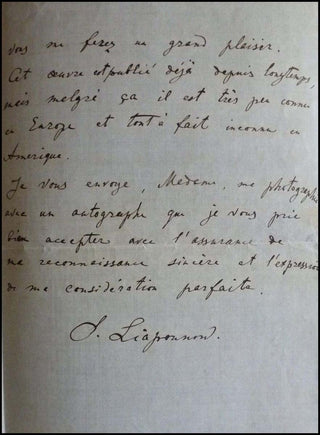 vous me ferez un grand plaisir.
Cet œuvre est publié déjà depuis longtemps,
mais melgré ça il est très peu connu
en Europe et tout à fait inconnu en
Amerique.
Je vous envoye, Madame, ma photographie
avec un autographe que je vous prie
bien accepter avec l'assurance de
ma reconnaissance sincère et l'expression
de ma considération parfaite.
S. Liapounnow.